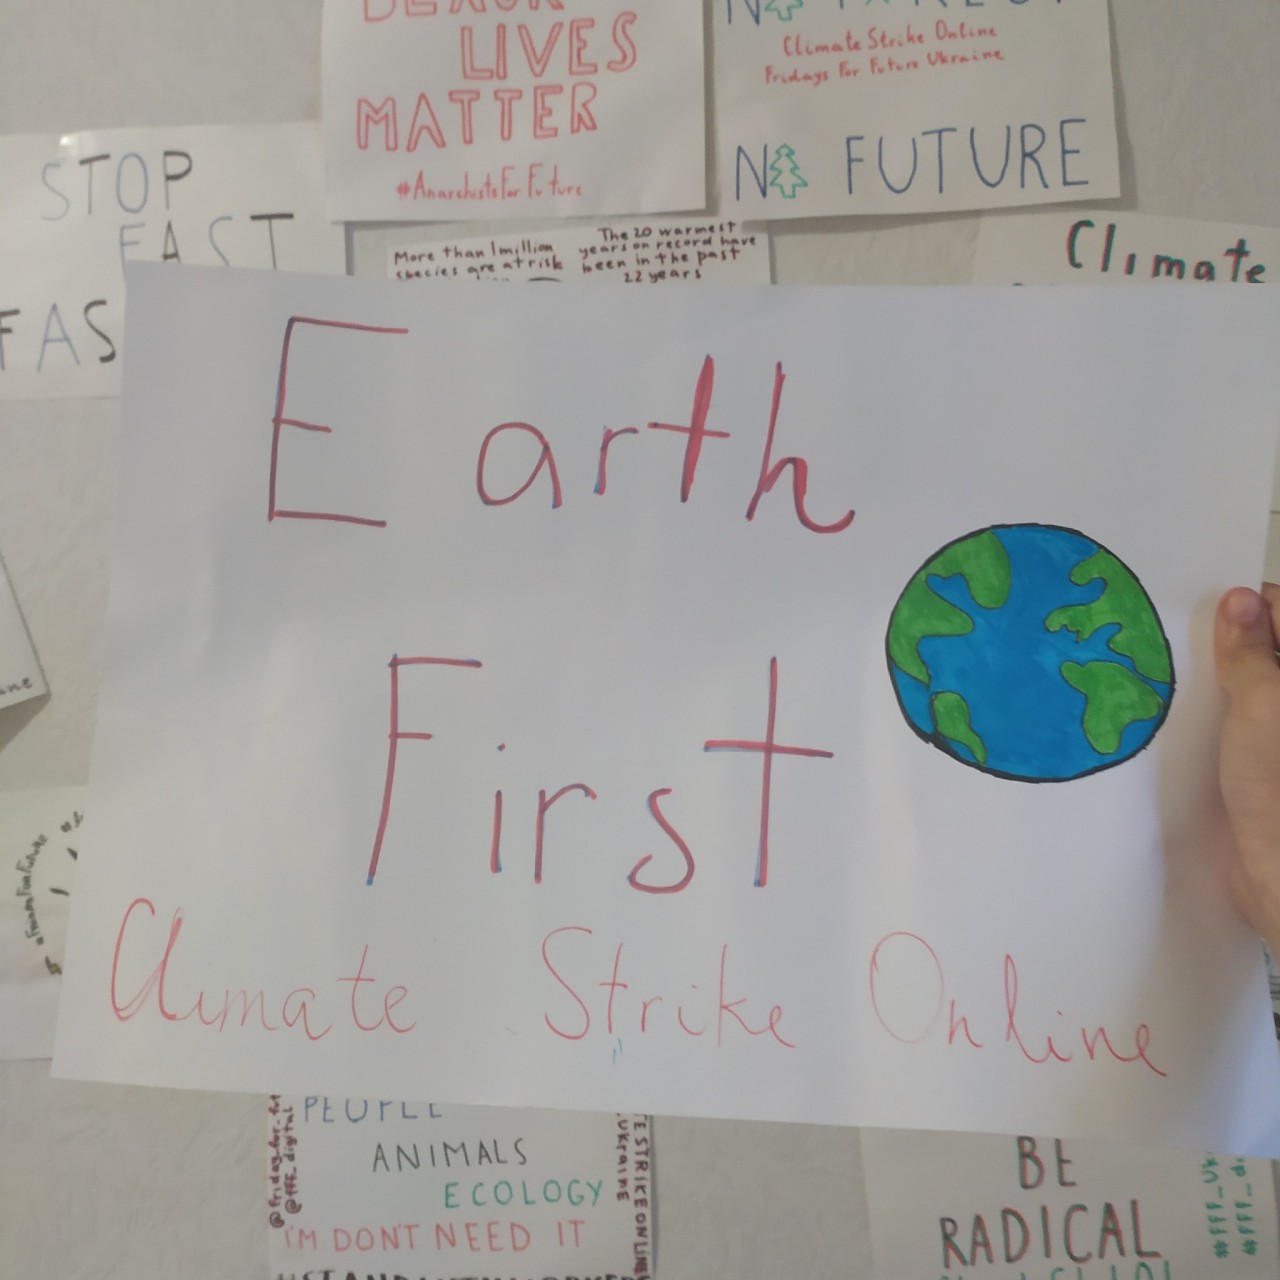 BLACK
LIVES
MATTER
#AnarchistsForFuture
Climate Strike Online
Fridays For Future Ukraine
FUTURE
STOP
FAST
FAS
More than 1 million
species are at risk
The 20 warmest
years on record have
been in the past
22 years
Climate
Earth
First
Climate Strike Online
PEOPLE
ANIMALS
ECOLOGY
I'M DON'T NEED IT
@fff_digital
UKRAINE
TE STRIKE ONLINE
BE
RADICAL